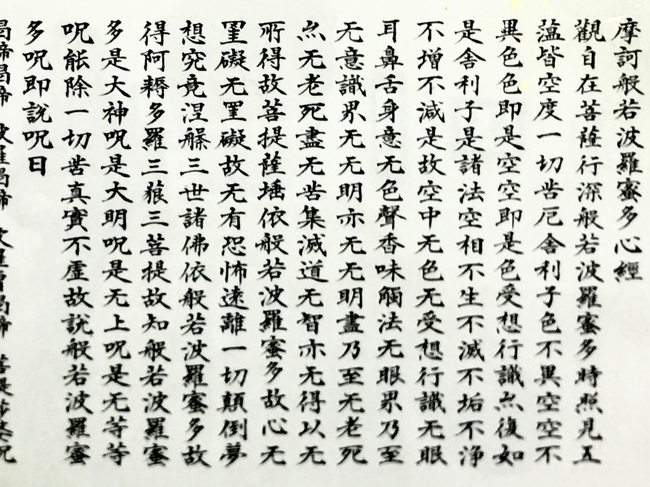 摩訶般若波羅蜜多心經
觀自在菩薩行深般若波羅蜜多時照見五
薀皆空度一切苦厄舍利子色不異空空不
異色色即是空空即是色受想行識亦復如
是舍利子是諸法空相不生不滅不垢不淨
不增不減是故空中无色无受想行識无眼
耳鼻舌身意无色聲香味觸法无眼界乃至
无意識界无无明亦无无明盡乃至无老死
亦无老死盡无苦集滅道无智亦无得以无
所得故菩提薩埵依般若波羅蜜多故心无
罣礙无罣礙故无有恐怖遠離一切顛倒夢
想究竟涅槃三世諸佛依般若波羅蜜多故
得阿耨多羅三藐三菩提故知般若波羅蜜
多是大神呪是大明呪是无上呪是无等等
呪能除一切苦真實不虛故說般若波羅蜜
多呪即說呪曰